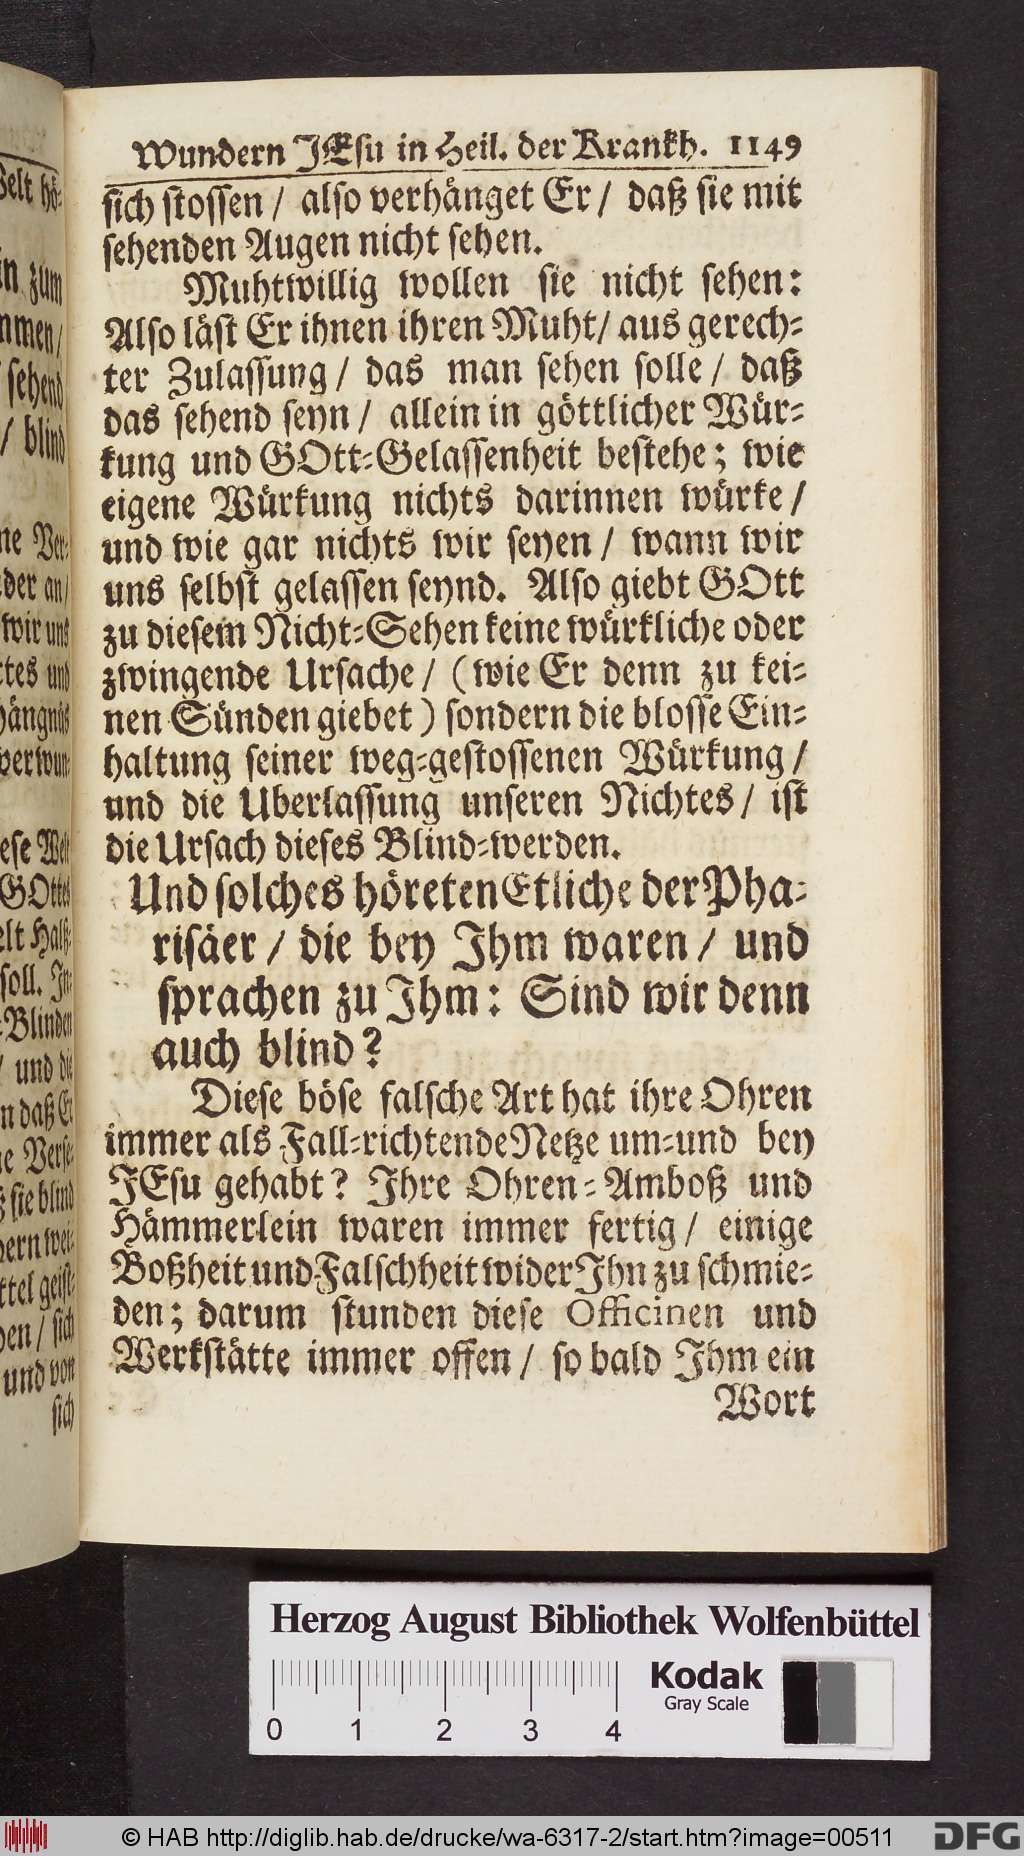 Wundern JEsu in Heil. der Krankh. 1149
sich stossen / also verhänget Er / daß sie mit
sehenden Augen nicht sehen.
Muhtwillig wollen sie nicht sehen:
Also läst Er ihnen ihren Muht / aus gerech-
ter Zulassung / das man sehen solle / daß
das sehend seyn / allein in göttlicher Wür-
kung und GOtt-Gelassenheit bestehe; wie
eigene Würkung nichts darinnen würke /
und wie gar nichts wir seyen / wann wir
uns selbst gelassen seynd. Also giebt GOtt
zu diesem Nicht-Sehen keine würkliche oder
zwingende Ursache / (wie Er denn zu kei-
nen Sünden giebet) sondern die blosse Ein-
haltung seiner weg-gestossenen Würkung /
und die Uberlassung unseren Nichtes / ist
die Ursach dieses Blind-werden.
Und solches höreten Etliche der Pha-
risäer / die bey Ihm waren / und
sprachen zu Ihm: Sind wir denn
auch blind?
Diese böse falsche Art hat ihre Ohren
immer als Fall-richtende Netze um-und bey
JEsu gehabt? Ihre Ohren-Amboß und
Hämmerlein waren immer fertig / einige
Boßheit und Falschheit wider Ihn zu schmie-
den; darum stunden diese Officinen und
Werkstätte immer offen / so bald Ihm ein
Wort
zum
sehend
/ blind
der an /
wir uns
soll. In-
-Blinden
/ und die
n daß Er
ß sie blind
den / sich
und von
sich
Herzog August Bibliothek Wolfenbüttel
Kodak
Gray Scale
0 1 2 3 4
© HAB http://diglib.hab.de/drucke/wa-6317-2/start.htm?image=00511
DFG